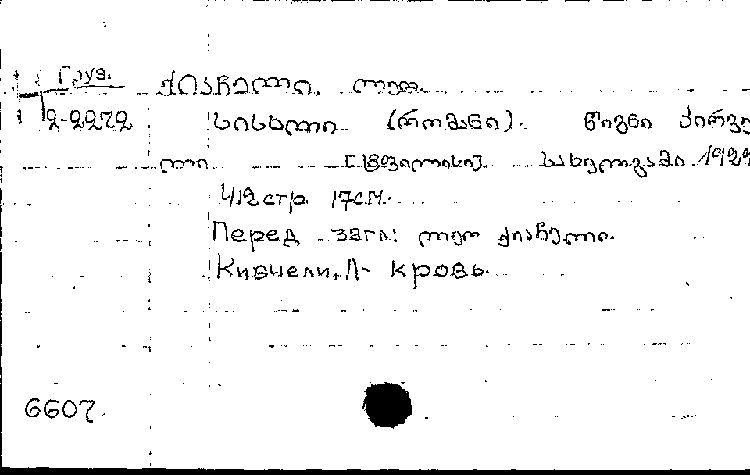 Груз. ქიაჩელი, ლეო.
2-2272 სისხლი (რომანი). წიგნი პირვე
ლი [ტფილისი]. სახელგამი. 1927
412 стр. 17 см.
Перед загл: ლეო ქიაჩელი.
Киачели, Л- Кровь.
6607.